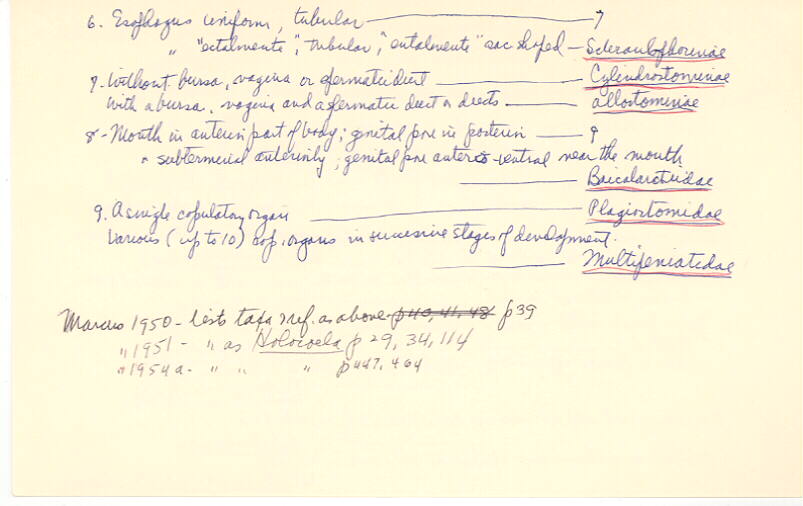 6. Esophagus uniform, tubular ——— 7
" "ectalmente", tubular, "entalmente" sac shaped — Scleraulophorinae
7. Without bursa, vagina or spermatic duct ——— Cylindrostominae
With a bursa, vagina and a spermatic duct or ducts —— Allostominae
8 - Mouth in anterior part of body; genital pore in posterior —— 9
" subterminal anteriorly; genital pore antero-ventral near the mouth
——— Baicalarctiidae
9. A single copulatory organ ——— Plagiostomidae
Various (up to 10) cop. organs in successive stages of development.
——— Multipeniatidae
Marcus 1950 - lists taxa & ref. as above p 40, 41, 48 p 39
" 1951 - " as Holocoela p 29, 34, 114
" 1954a - " " " p 447, 464